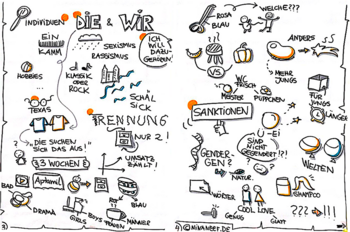 INDIVIDUEN
DIE & WIR
EIN
KAMA
SEXISMUS
RASSISMUS
ICH
WILL
DAZU-
GEHÖREN!
HOBBIES
KLASSIK
ODER
ROCK
SCHÄL
SICK
TEXAS
TRENNUNG
NUR 2!
DIE SUCHEN
SICH DAS AUS!
3 WOCHEN
UMSATZ
ZÄHLT!
BAD
Aptamil
ROT
BLAU
DRAMA
GIRLS
BOYS
FRAUEN
MÄNNER
3)
ROSA
BLAU
WELCHE???
ANDERS
VS.
MEHR
JUNGS
WC
FRISCH
MEISTER
PÜPPCHEN
FÜR
JUNGS
LÄNGER
SANKTIONEN
Ü-EI
SIND
NICHT
GEGENDERT!?!
GENDER-
GEN?
NATUR
WELTEN
WÖRTER
SHAMPOO
COOL
LOVE
GENUG
GLATT
??? !!!
4)
© MIVANBET.DE